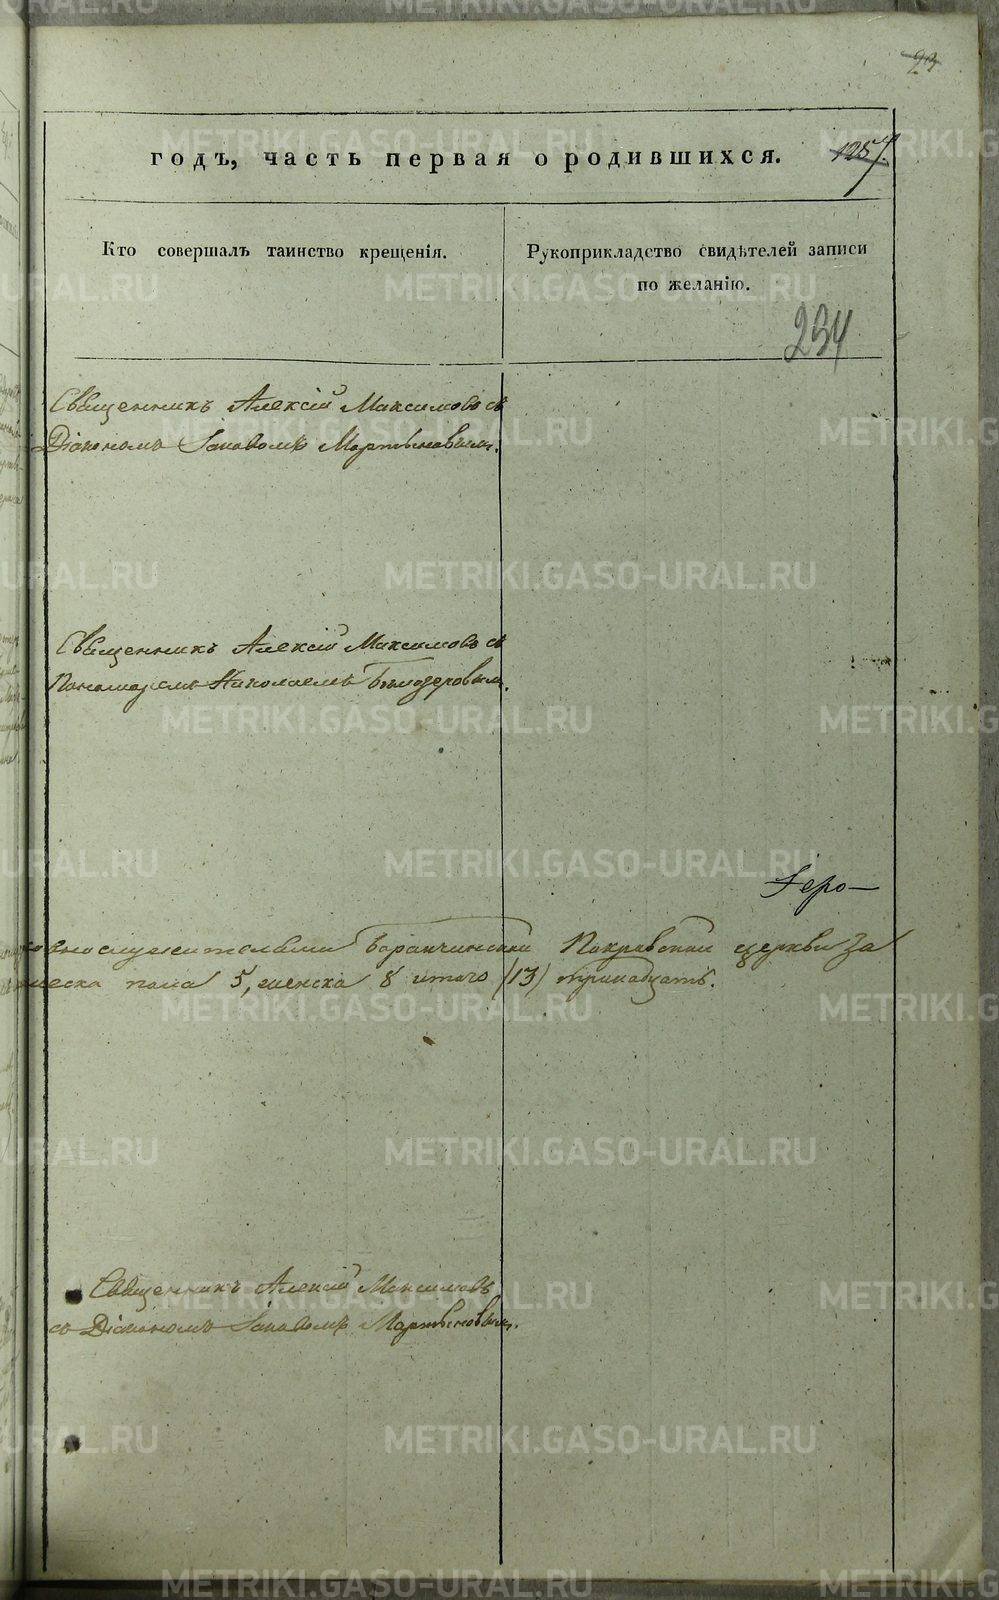 23
годъ, часть первая о родившихся. 1257.
Кто совершалъ таинство крещенія.
Рукоприкладство свидѣтелей записи
по желанію.
234
Священникъ Алексій Максимовъ съ
Діакономъ Іаковомъ Мартыновымъ.
Священникъ Алексій Максимовъ съ
Пономаремъ Николаемъ Бѣлозеровымъ.
Іеро-
Баранчинской Покровской церкви За
пола 5, женска 8 итого (13) тринадцать.
Священникъ Алексій Максимовъ
съ Діакономъ Іаковомъ Мартыновымъ.
METRIKI.GASO-URAL.RU